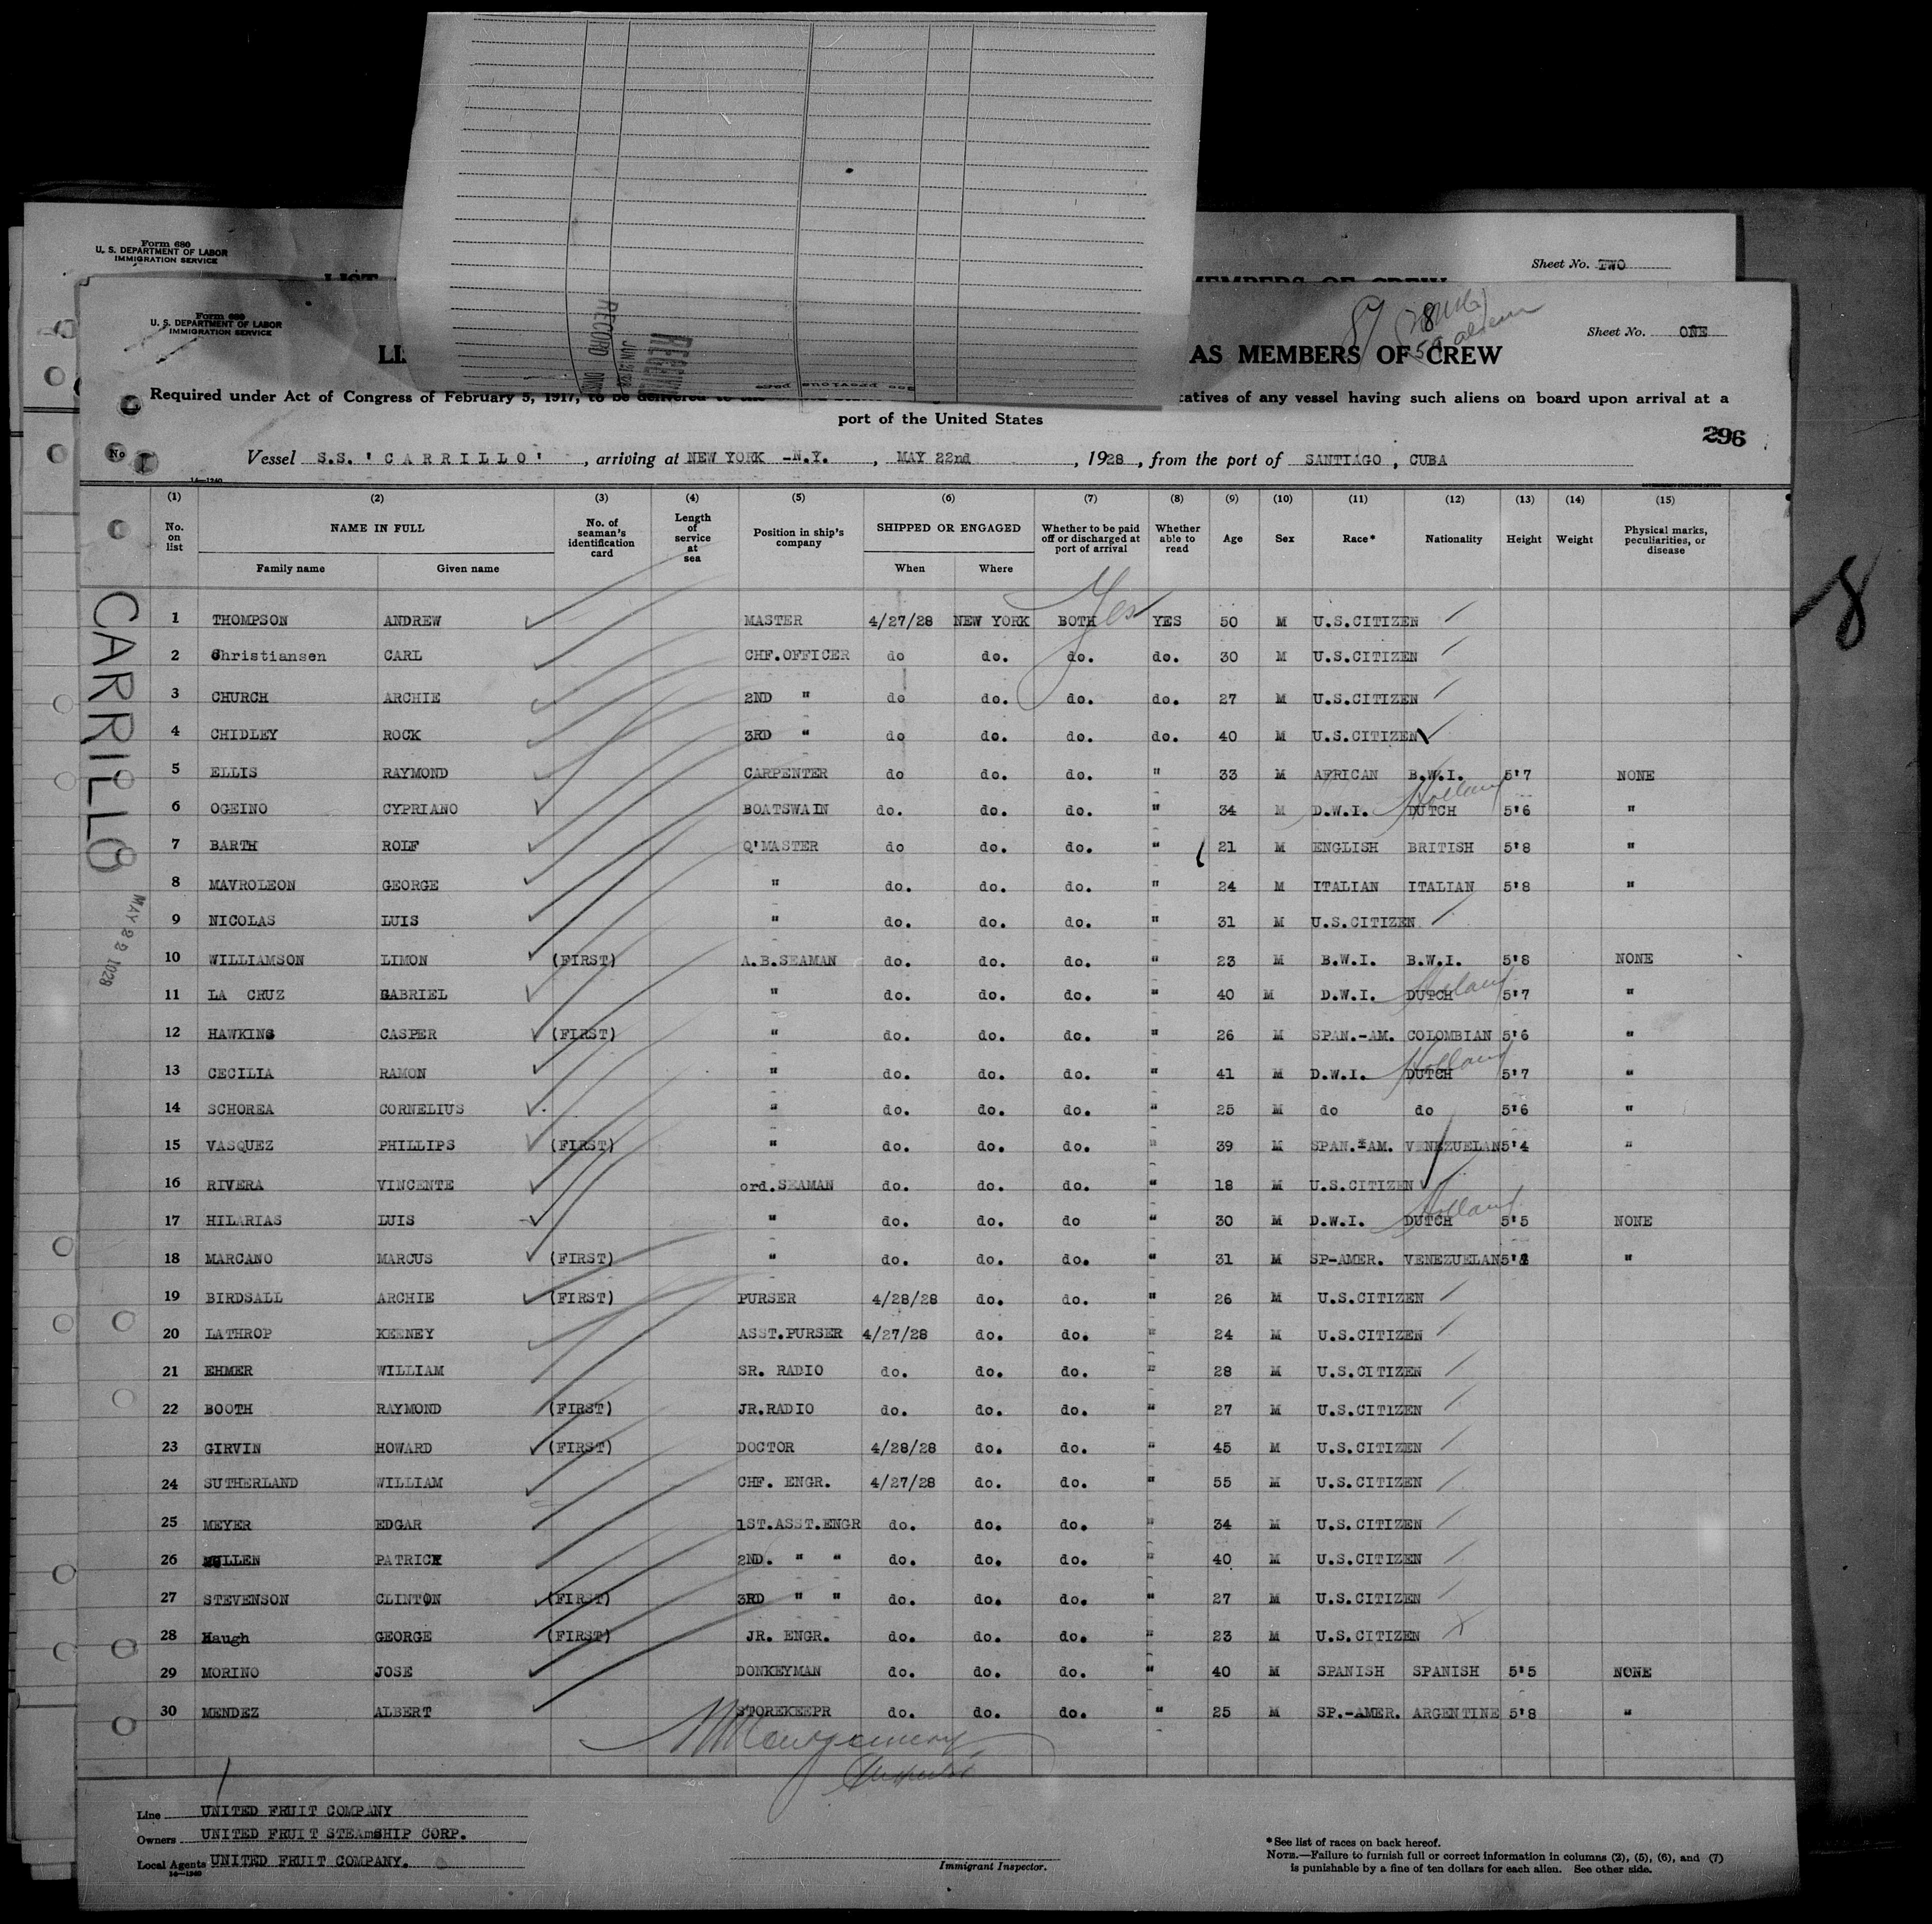 Form 680
U. S. DEPARTMENT OF LABOR
IMMIGRATION SERVICE
Sheet No. TWO
MEMBERS OF CREW
Form 680
U. S. DEPARTMENT OF LABOR
IMMIGRATION SERVICE
Sheet No. ONE
AS MEMBERS OF CREW
Required under Act of Congress of February 5, 1917, to be delivered to the
tatives of any vessel having such aliens on board upon arrival at a
port of the United States
296
Vessel S.S. 'CARRILLO', arriving at NEW YORK -N.Y., MAY 22nd, 1928, from the port of SANTIAGO, CUBA
(1) (2) (3) (4) (5) (6) (7) (8) (9) (10) (11) (12) (13) (14) (15)
No. on list NAME IN FULL No. of seaman's identification card Length of service at sea Position in ship's company SHIPPED OR ENGAGED Whether to be paid off or discharged at port of arrival Whether able to read Age Sex Race* Nationality Height Weight Physical marks, peculiarities, or disease
Family name Given name When Where
Yes
1 THOMPSON ANDREW MASTER 4/27/28 NEW YORK BOTH YES 50 M U.S.CITIZEN
2 Christiansen CARL CHF.OFFICER do do. do. do. 30 M U.S.CITIZEN
3 CHURCH ARCHIE 2ND " do do. do. do. 27 M U.S.CITIZEN
4 CHIDLEY ROCK 3RD " do do. do. do. 40 M U.S.CITIZEN
5 ELLIS RAYMOND CARPENTER do do. do. " 33 M AFRICAN B.W.I. 5'7 NONE
6 OGEINO CYPRIANO BOATSWAIN do. do. do. " 34 M D.W.I. DUTCH Holland 5'6 "
7 BARTH ROLF Q'MASTER do do. do. " 21 M ENGLISH BRITISH 5'8 "
8 MAVROLEON GEORGE " do. do. do. " 24 M ITALIAN ITALIAN 5'8 "
9 NICOLAS LUIS " do. do. do. " 31 M U.S.CITIZEN
10 WILLIAMSON LIMON (FIRST) A.B.SEAMAN do. do. do. " 23 M B.W.I. B.W.I. 5'8 NONE
11 LA CRUZ GABRIEL " do. do. do. " 40 M D.W.I. DUTCH Holland 5'7 "
12 HAWKINS CASPER (FIRST) " do. do. do. " 26 M SPAN.-AM. COLOMBIAN 5'6 "
13 CECILIA RAMON " do. do. do. " 41 M D.W.I. DUTCH Holland 5'7 "
14 SCHOREA CORNELIUS " do. do. do. " 25 M do do 5'6 "
15 VASQUEZ PHILLIPS (FIRST) " do. do. do. " 39 M SPAN.-AM. VENEZUELAN 5'4 "
16 RIVERA VINCENTE ord.SEAMAN do. do. do. " 18 M U.S.CITIZEN
17 HILARIAS LUIS " do. do. do " 30 M D.W.I. DUTCH Holland 5'5 NONE
18 MARCANO MARCUS (FIRST) " do. do. do. " 31 M SP-AMER. VENEZUELAN "
19 BIRDSALL ARCHIE (FIRST) PURSER 4/28/28 do. do. " 26 M U.S.CITIZEN
20 LATHROP KEENEY ASST.PURSER 4/27/28 do. do. " 24 M U.S.CITIZEN
21 EHMER WILLIAM SR. RADIO do. do. do. " 28 M U.S.CITIZEN
22 BOOTH RAYMOND (FIRST) JR.RADIO do. do. do. " 27 M U.S.CITIZEN
23 GIRVIN HOWARD (FIRST) DOCTOR 4/28/28 do. do. " 45 M U.S.CITIZEN
24 SUTHERLAND WILLIAM CHF. ENGR. 4/27/28 do. do. " 55 M U.S.CITIZEN
25 MEYER EDGAR 1ST.ASST.ENGR do. do. do. " 34 M U.S.CITIZEN
26 MULLEN PATRICK 2ND. " " do. do. do. " 40 M U.S.CITIZEN
27 STEVENSON CLINTON (FIRST) 3RD " " do. do. do. " 27 M U.S.CITIZEN
28 Haugh GEORGE (FIRST) JR. ENGR. do. do. do. " 23 M U.S.CITIZEN
29 MORINO JOSE DONKEYMAN do. do. do. " 40 M SPANISH SPANISH 5'5 NONE
30 MENDEZ ALBERT STOREKEEPR do. do. do. " 25 M SP.-AMER. ARGENTINE 5'8 "
CARRILLO
MAY 22 1928
8
Montgomery
Line UNITED FRUIT COMPANY
Owners UNITED FRUIT STEAmSHIP CORP.
Local Agents UNITED FRUIT COMPANY.
14-1240
Immigrant Inspector.
*See list of races on back hereof.
NOTE.—Failure to furnish full or correct information in columns (2), (5), (6), and (7)
is punishable by a fine of ten dollars for each alien. See other side.